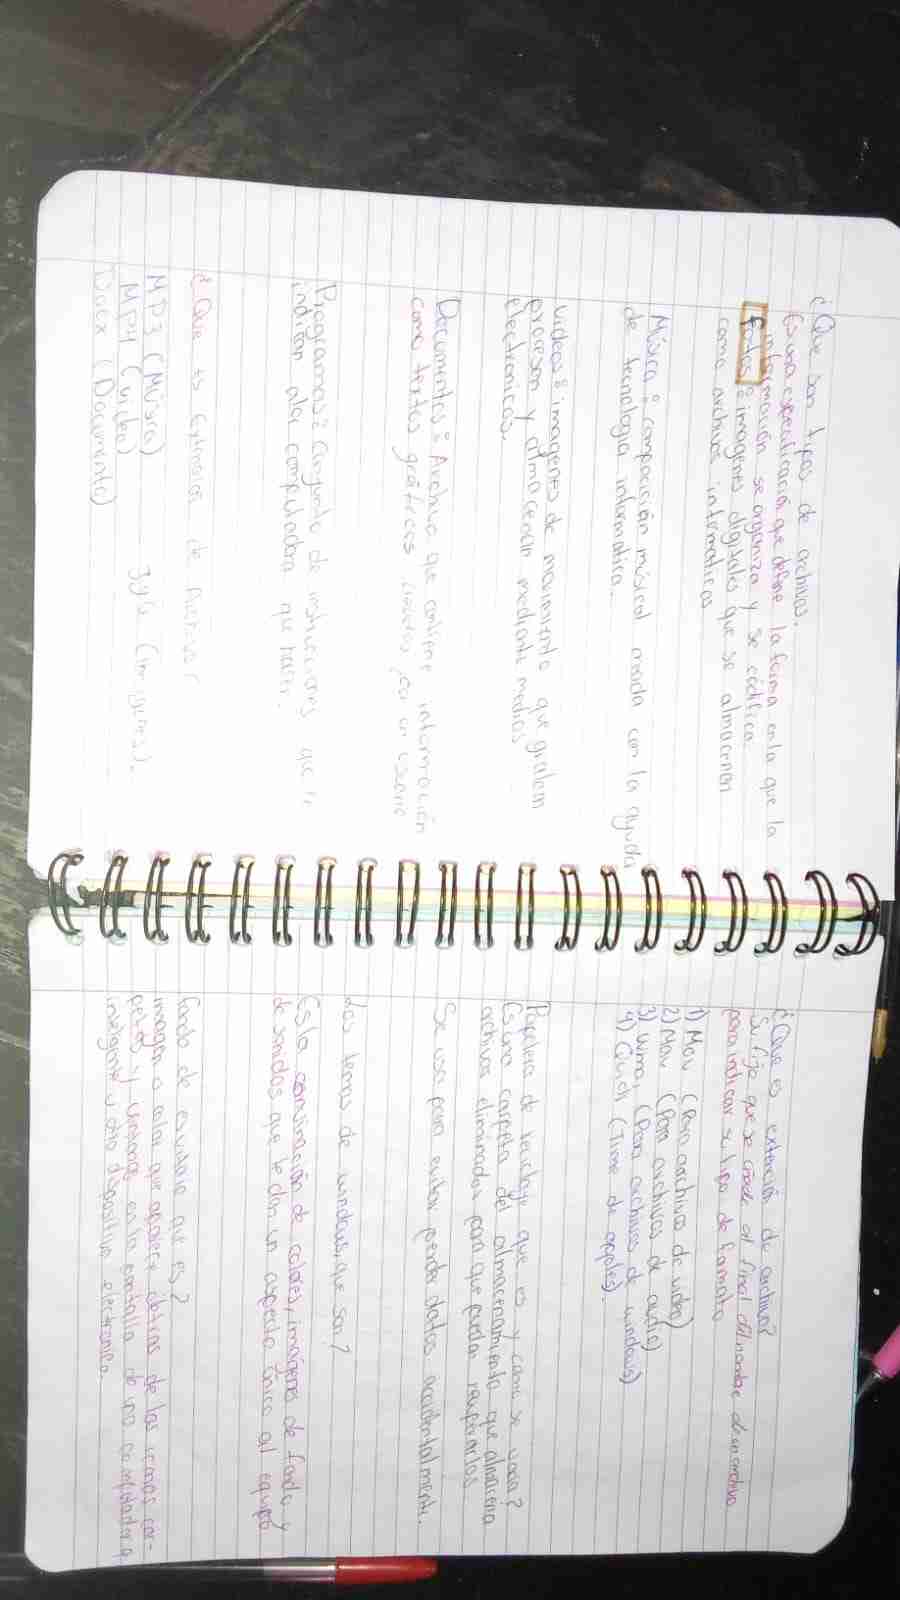 ¿Que son tipos de archivos.
Es una especificación que define la forma en la que la
información se organiza y se códifica.
Fotos: imagenes digitales que se almacenan
como archivos informaticos
Música: compocición músical creada con la ayuda
de tecnología informatica.
Videos: imagenes de movimiento que
procesan y almacenan mediante medios
electronicos.
Documentos: Archivo que contiene información
como textos gráficos creados por un usuario
Programas: Conjunto de instrucciones que
indican a la computadora que hacer.
¿Que es Extención de Archivo?
MP3 (Música)
MP4 (video) (imagenes).
Docx (Documento)
¿Que es extención de archivo?
Sufijo que se añade al final del nombre de un archivo
para indicar su tipo de formato
1) Mov (Para archivos de video)
2) (Para archivos de audio)
3) wma, (Para archivos de windows)
4) (Time de apples).
Papelera de reciclaje que es y como se usa?
Es una carpeta del almacenamiento que almacena
archivos eliminados para que puedan recuperarlos
Se usa para evitar perder datos accidentalmente.
Los temas de windows, que son?
Es la convinación de colores, imágenes de fondo y
de sonidos que te dan un aspecto único al equipo
Fondo de escritorio que es?
imagen o color que aparece detras de los iconos car-
petas y ventanas en la pantalla de una computadora,
inteligente u otro dispositivo electronico.